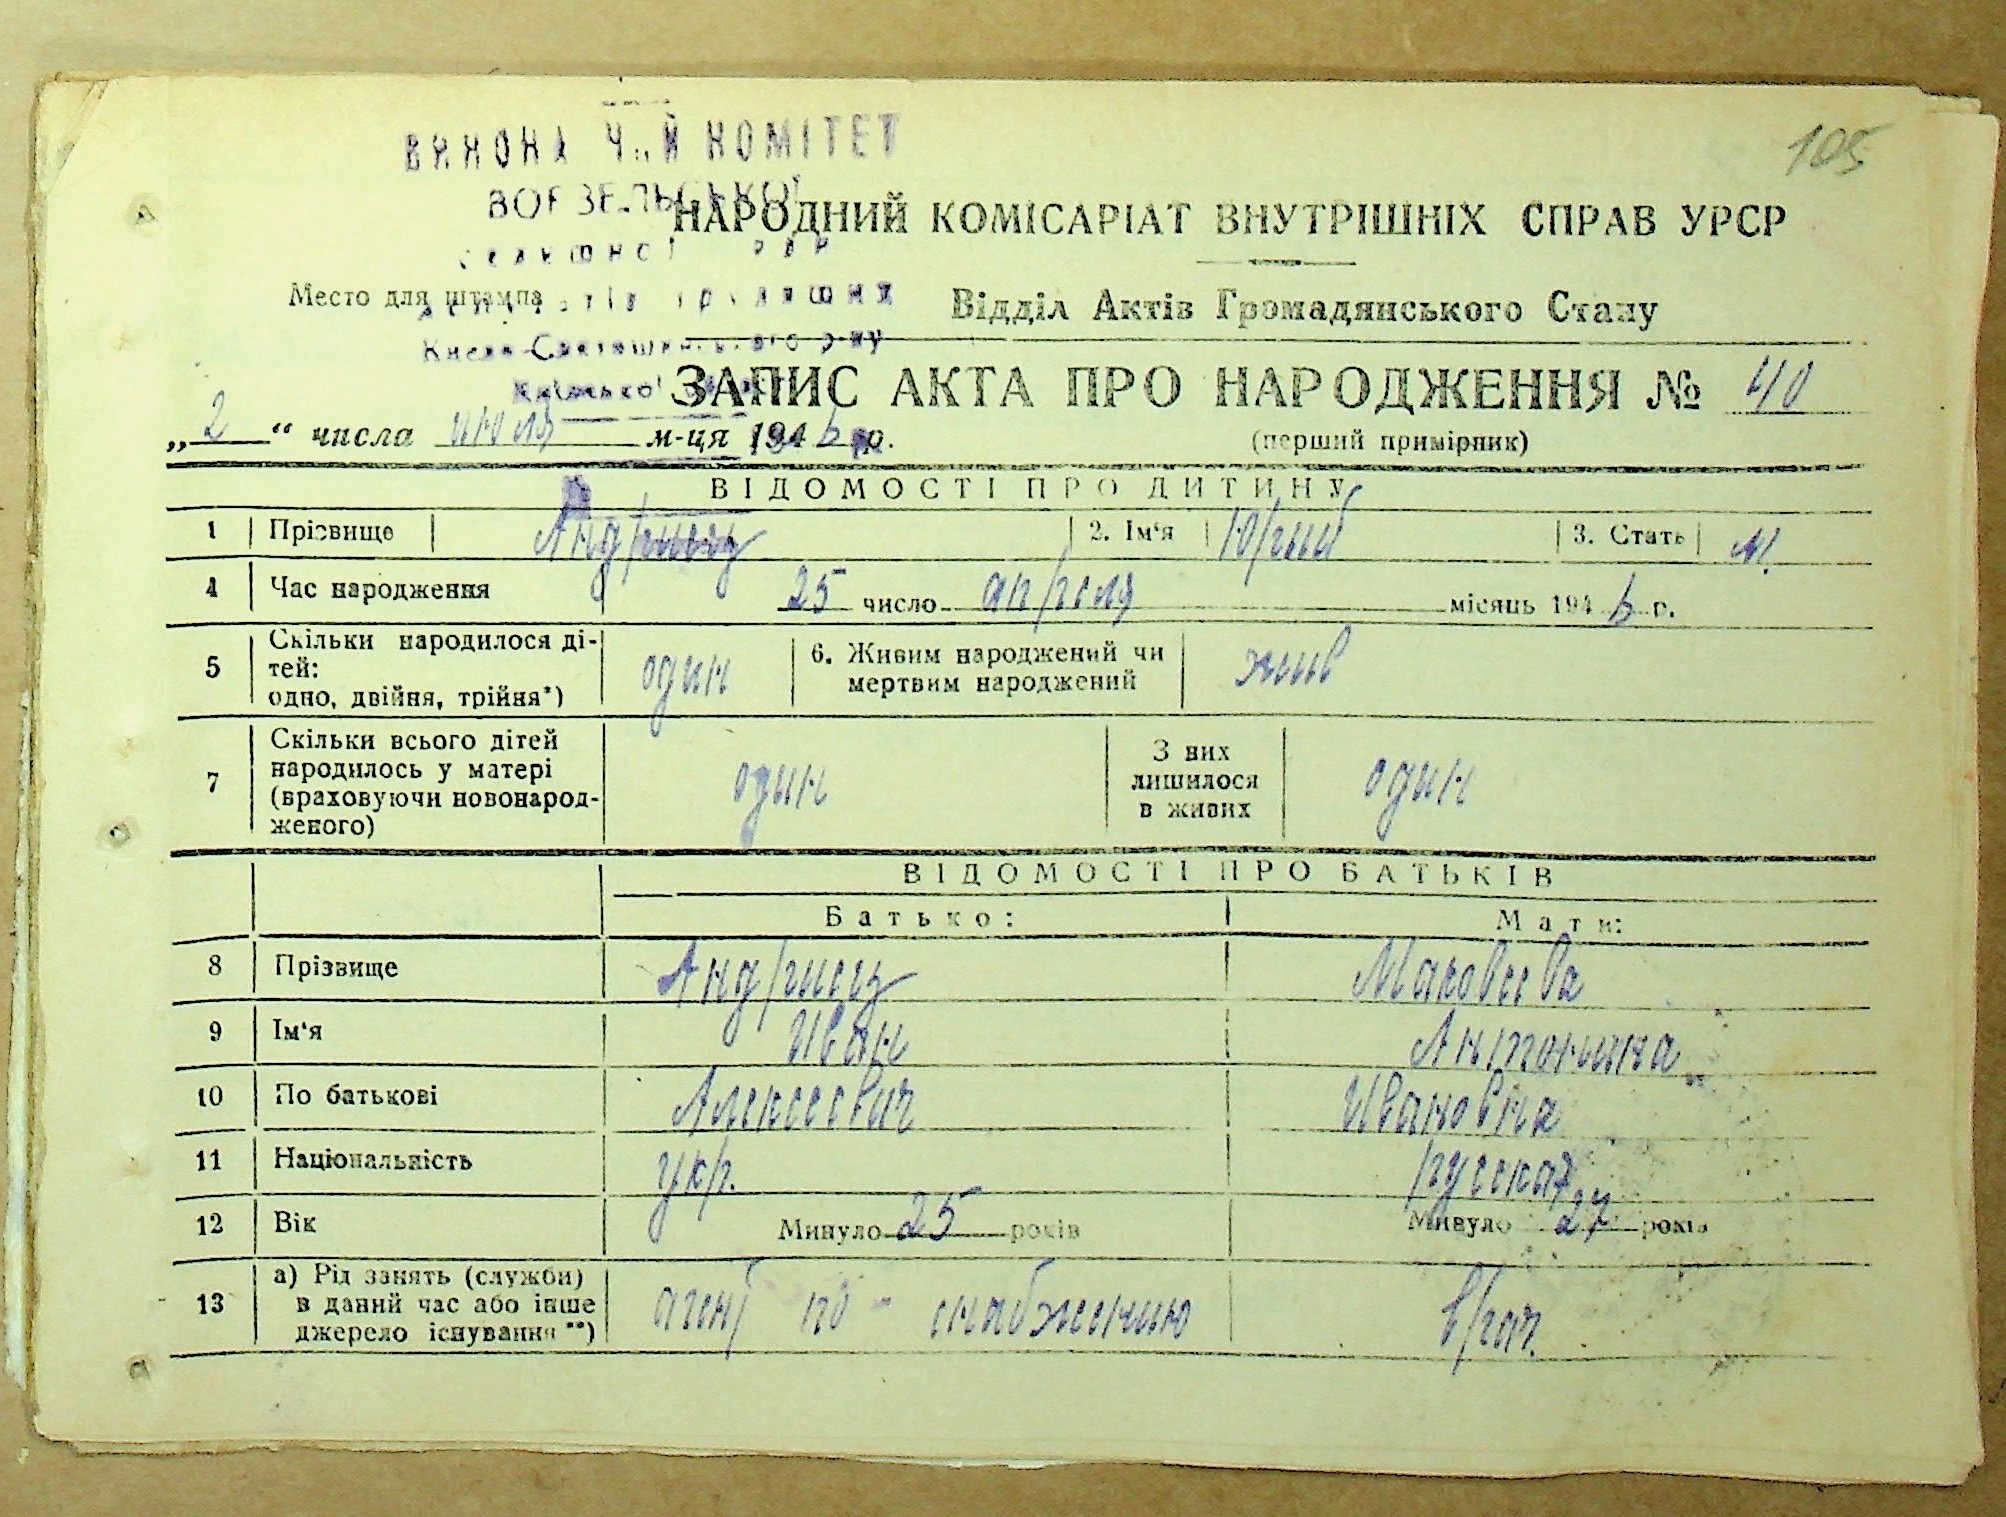 105
ВИКОНА Ч.Й КОМІТЕТ
ВОРЗЕЛЬСЬКОЇ
НАРОДНИЙ КОМІСАРІАТ ВНУТРІШНІХ СПРАВ УРСР
Место для штампа
Відділ Актів Громадянського Стану
Києво-Святошинського р-ну
ЗАПИС АКТА ПРО НАРОДЖЕННЯ № 40
„2“ числа июля м-ця 1946 р. (перший примірник)
ВІДОМОСТІ ПРО ДИТИНУ
1 Прізвище Андриец 2. Ім‘я Юрий 3. Стать М.
4 Час народження 25 число апреля місяць 1946 р.
5 Скільки народилося ді-
тей:
одно, двійня, трійня*) один 6. Живим народжений чи
мертвим народжений жив
7 Скільки всього дітей
народилось у матері
(враховуючи новонарод-
женого) один З них
лишилося
в живих один
ВІДОМОСТІ ПРО БАТЬКІВ
Батько: Мати:
8 Прізвище Андриец Маковеева
9 Ім‘я Иван Антонина
10 По батькові Алексеевич Ивановна
11 Національність укр. русская
12 Вік Минуло 25 років Минуло 27 років
13 а) Рід занять (служби)
в даний час або інше
джерело існування**) агент по снабжению врач.